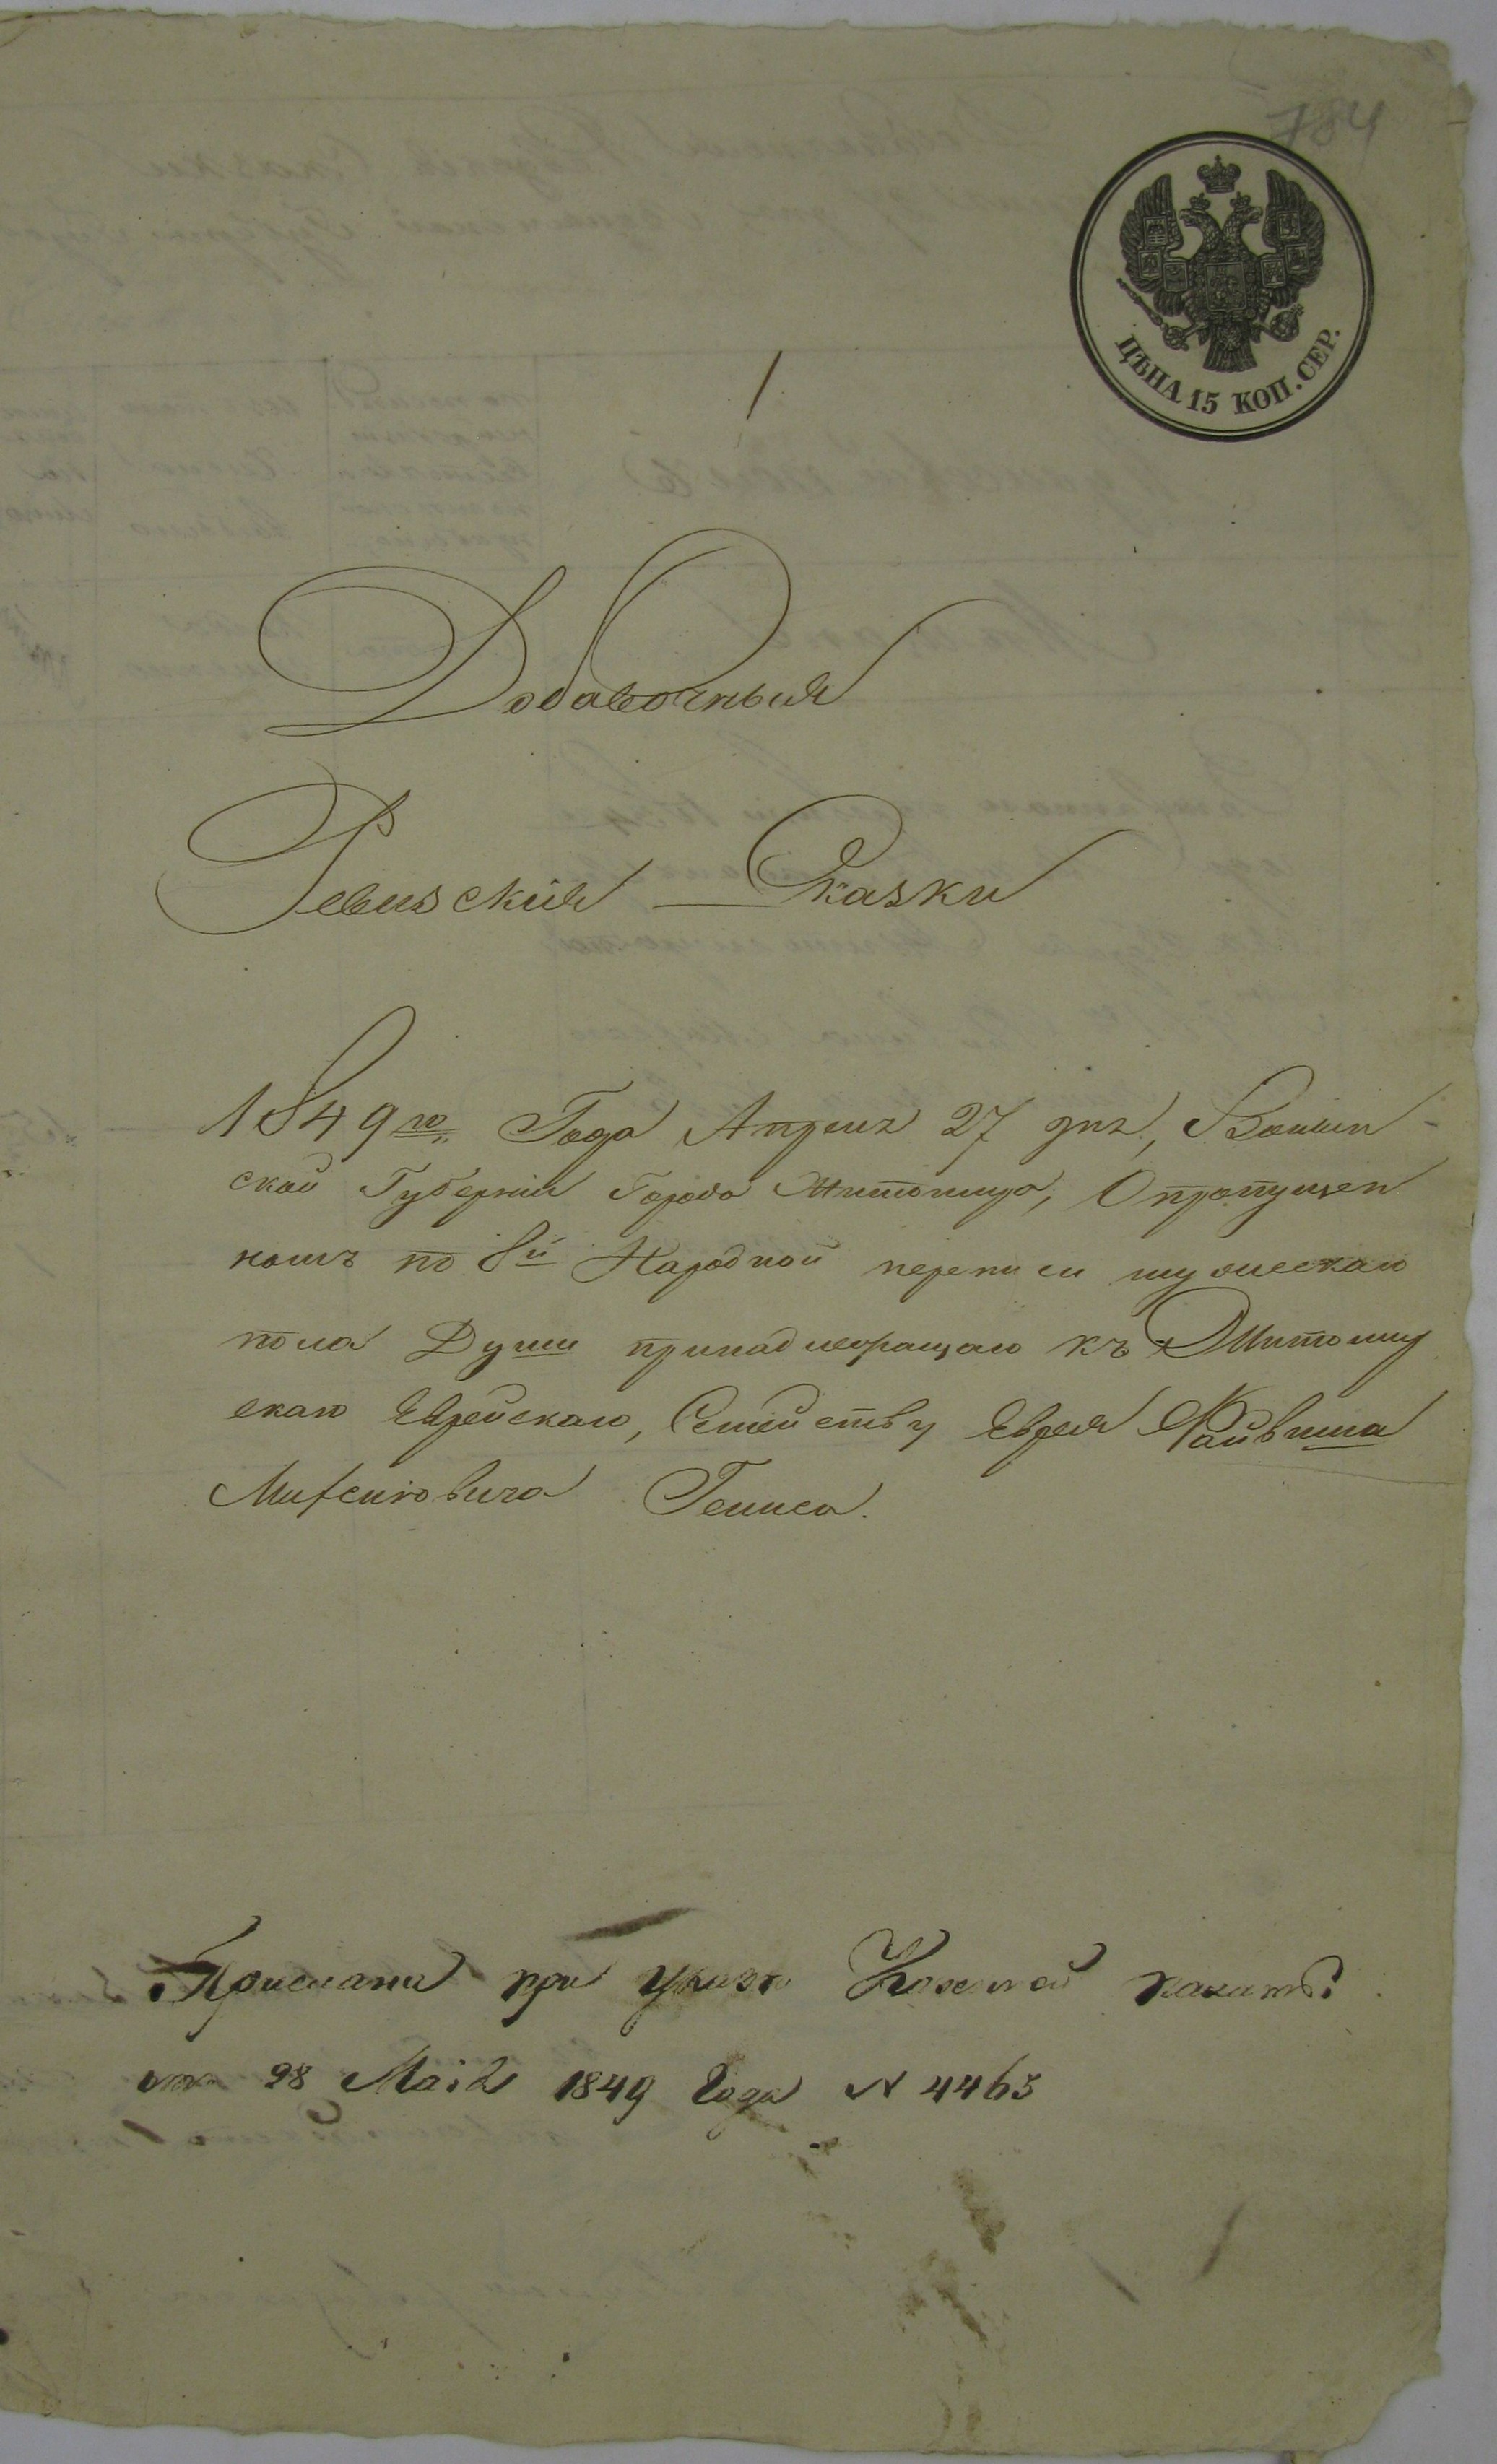 784
ЦѢНА 15 КОП. СЕР.
Добавочныя
Ревизскія Сказки
1849го Года Апреля 27 дня, Волын-
ской Губерніи Города Житомира, О пропущен
номъ по 8й Народной переписи мужескаго
пола Души принадлежащаго къ Житомир
скаго Еврейскаго, Семейству Еврея Файвиша
Гениса.
Присланы при указѣ Казенной палаты
отъ 28 Маія 1849 Года N 4463